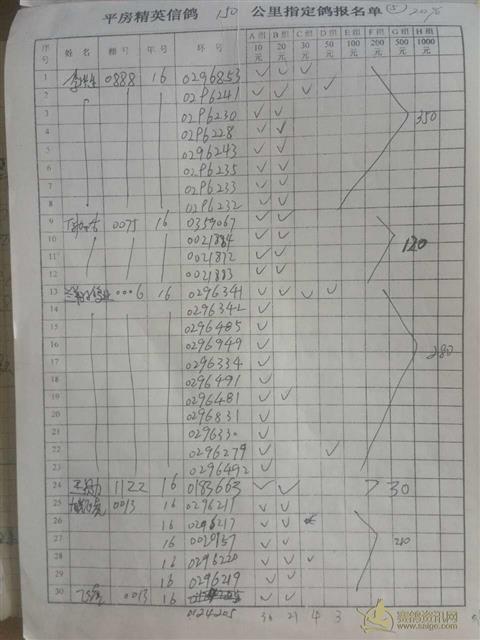 平房精英信鸽 150 公里指定鸽报名单 ⑤ 20%
序号 姓名 棚号 年号 环号 A组10元 B组20元 C组30元 D组50元 E组100元 F组200元 G组500元 H组1000元
1 0888 16 0296853 ✓ ✓ ✓
2 0296241 ✓ ✓ ✓ ✓
3 0296230 ✓ ✓ 350
4 0296228 ✓ ✓
5 0296243 ✓ ✓
6 0296235 ✓ ✓
7 0296233 ✓ ✓
8 0296232 ✓ ✓
9 0075 16 0359067 ✓ ✓
10 0021884 ✓ ✓ 120
11 0021872 ✓ ✓
12 0021883 ✓ ✓
13 0006 16 0296341 ✓ ✓ ✓ ✓
14 0296342 ✓
15 0296485 ✓
16 0296949 ✓ 280
17 0296334 ✓
18 0296491 ✓
19 0296481 ✓ ✓
20 0296831 ✓
21 029633 ✓
22 0296279 ✓ ✓
23 0296492 ✓
24 1122 16 0183663 ✓ ✓ 30
25 0013 16 0296211 ✓ ✓
26 16 0296217 ✓ ✓
27 16 0021957 ✓ ✓ 210
28 16 0296220 ✓ ✓ ✓
29 16 0296219 ✓ ✓
30 0013 16 ✓ ✓
0124205 30 21 4 3
赛鸽资讯网
www.saige.com